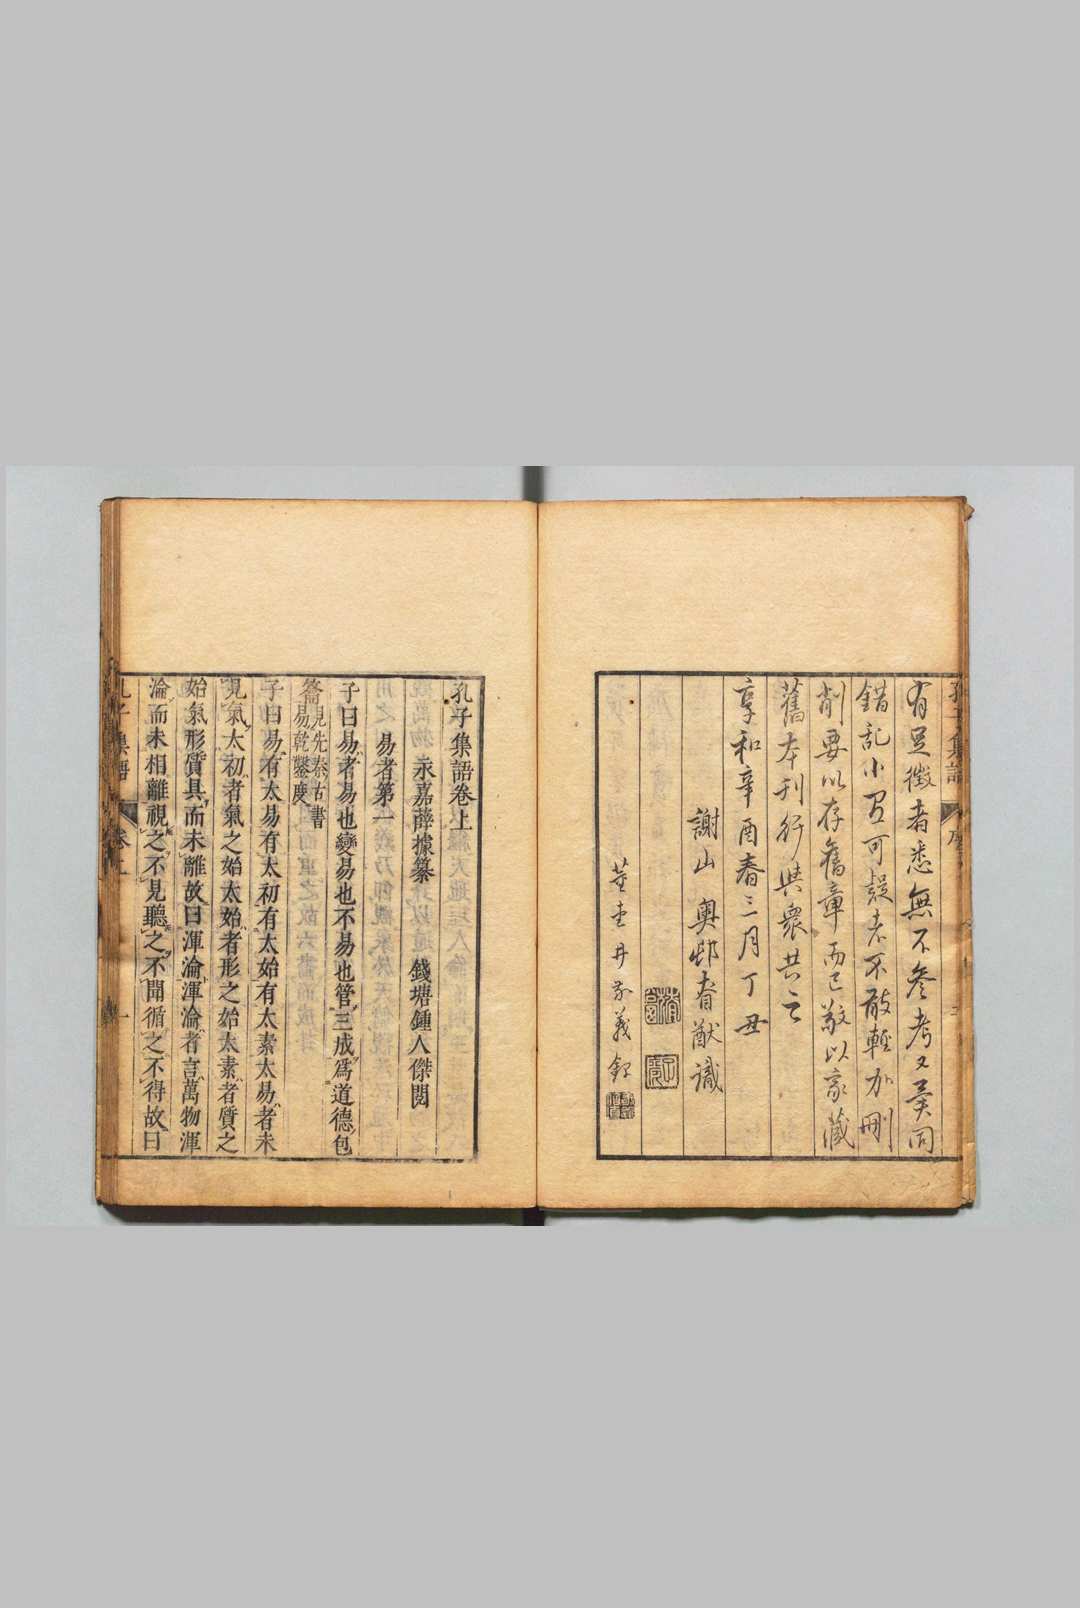 有足徵者悉無不參考又異同
錯乱小
可疑者不敢輕加刪
削要以存舊章而已敬以家藏
舊本刊行與衆共之
享和辛酉春三月丁丑
謝山奧邨春猷識
義
孔子集語
序
孔子集語卷上
永嘉薛據纂 錢塘鍾人傑閱
易者第一
子曰易者易也變易也不易也管三成爲道德包
籥見先秦古書
易乾鑿度
子曰易有太易有太初有太始有太素太易者未
見氣太初者氣之始太始者形之始太素者質之
始氣形質具而未離故曰渾淪渾淪者言萬物渾
淪而未相離視之不見聽之不聞循之不得故曰
孔子集語
卷上
一